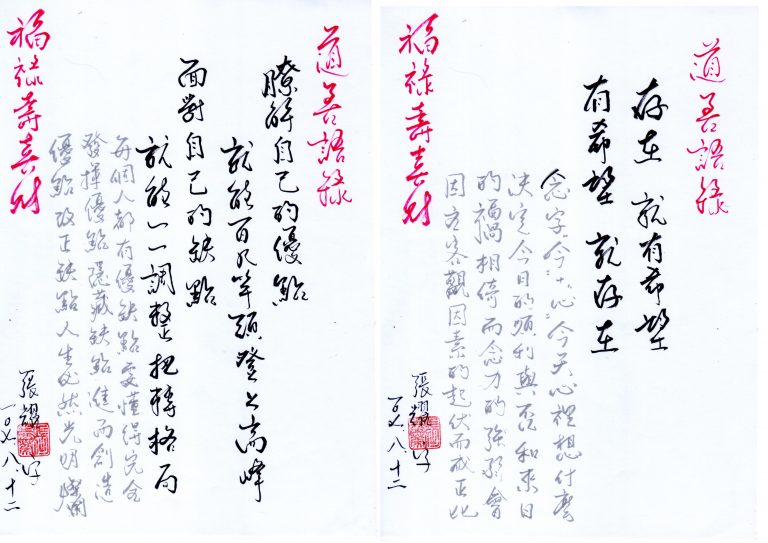 道善語錄
存在 就有希望
有希望 就存在
念字"今"+"心"今天心裡想什麼
決定今日的順利與否和來日
的福禍相倚而念力的強弱會
因客觀因素的起伏而成正比
福祿壽喜財
張耀
一○七.八.十二
道善語錄
瞭解自己的優點
就能百尺竿頭登上高峰
面對自己的缺點
就能一一調整扭轉格局
每個人都有優缺點要懂得完全
發揮優點隱藏缺點進而創造
優點改正缺點人生必然光明燦爛
福祿壽喜財
張耀
一○七.八.十二